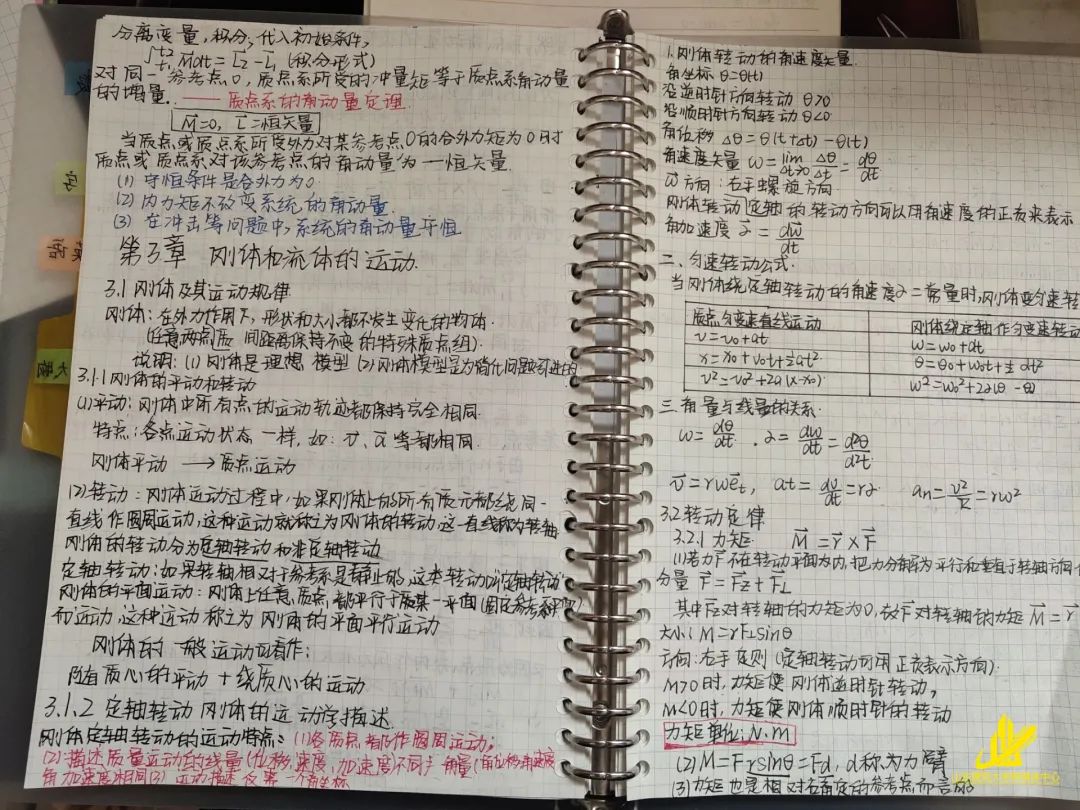 分离变量,积分,代入初始条件,
∫t1 t2 M⃗dt = L⃗2 - L⃗1 (积分形式)
对同一参考点O,质点系所受的冲量矩等于质点系角动量
的增量. —— 质点系的角动量定理
M⃗=0, L⃗=恒矢量
当质点或质点系所受外力对某参考点O的合外力矩为0时
质点或质点系对该参考点的角动量为一恒矢量
(1) 守恒条件是合外力为0
(2) 内力矩不改变系统的角动量
(3) 在冲击等问题中,系统的角动量守恒
第3章 刚体和流体的运动.
3.1 刚体及其运动规律
刚体:在外力作用下,形状和大小都不发生变化的物体.
(任意两点质 间距离保持不变的特殊质点组)
说明:(1) 刚体是理想模型 (2) 刚体模型是为简化问题引进的
3.1.1 刚体的平动和转动
(1)平动:刚体中所有点的运动轨迹都保持完全相同.
特点:各点运动状态一样,如:v⃗、a⃗等都相同.
刚体平动 → 质点运动
(2)转动:刚体运动过程中,如果刚体上的所有质元都绕同一
直线作圆周运动,这种运动就称之为刚体的转动,这一直线称为转轴
刚体的转动分为定轴转动和非定轴转动
定轴转动:如果转轴相对于参考系是静止的,这类转动叫定轴转动
刚体的平面运动:刚体上任意质点,都平行于某一平面(固定参考平面)
而运动,这种运动称之为刚体的平面平行运动
刚体的一般运动可看作:
随质心的平动 + 绕质心的运动
3.1.2 定轴转动刚体的运动学描述
刚体定轴转动的运动特点:(1)各质点都作圆周运动;
(2)描述质量运动的线量(位移,速度,加速度不同);角量(角位移角速度
角加速度相同(3) 运动描述仅需一个角坐标
1.刚体转动的角速度矢量.
角坐标 θ=θ(t)
沿逆时针方向转动 θ>0
沿顺时针方向转动 θ<0
角位移 Δθ=θ(t+Δt)-θ(t)
角速度矢量 ω=lim Δt→0 Δθ/Δt = dθ/dt
ω⃗方向:右手螺旋方向
刚体转动(定轴的转动方向可以用角速度的正负来表示
角加速度 α⃗ = dω⃗/dt
二、匀速转动公式.
当刚体绕定轴转动的角速度α=常量时,刚体变匀速转
质点匀变速直线运动 刚体绕定轴作匀变速转动
v=v0+at ω=ω0+αt
x=x0+v0t+½at² θ=θ0+ω0t+½αt²
v²=v0²+2a(x-x0) ω²=ω0²+2α(θ-θ0)
三.角量与线量的关系.
ω=dθ/dt . α=dω/dt=d²θ/d²t
v⃗=rωe⃗t, at=dv/dt=rα an=v²/R=rω²
3.2 转动定律
3.2.1 力矩. M⃗=r⃗×F⃗
(1)若力F⃗不在转动平面内,把力分解为平行和垂直于转轴方向
分量 F⃗=F⃗z+F⃗⊥
其中F⃗z对转轴的力矩为0,故F⃗对转轴的力矩 M⃗=r⃗
大小: M=rF⊥sinθ
方向:右手定则 (定轴转动可用正负表示方向).
M>0时,力矩使刚体逆时针转动,
M<0时,力矩使刚体顺时针的转动
力矩单位:N·m
(2) M=Frsinθ=Fd, d称为力臂
(3)力矩也是相对右指定的参考点而言的